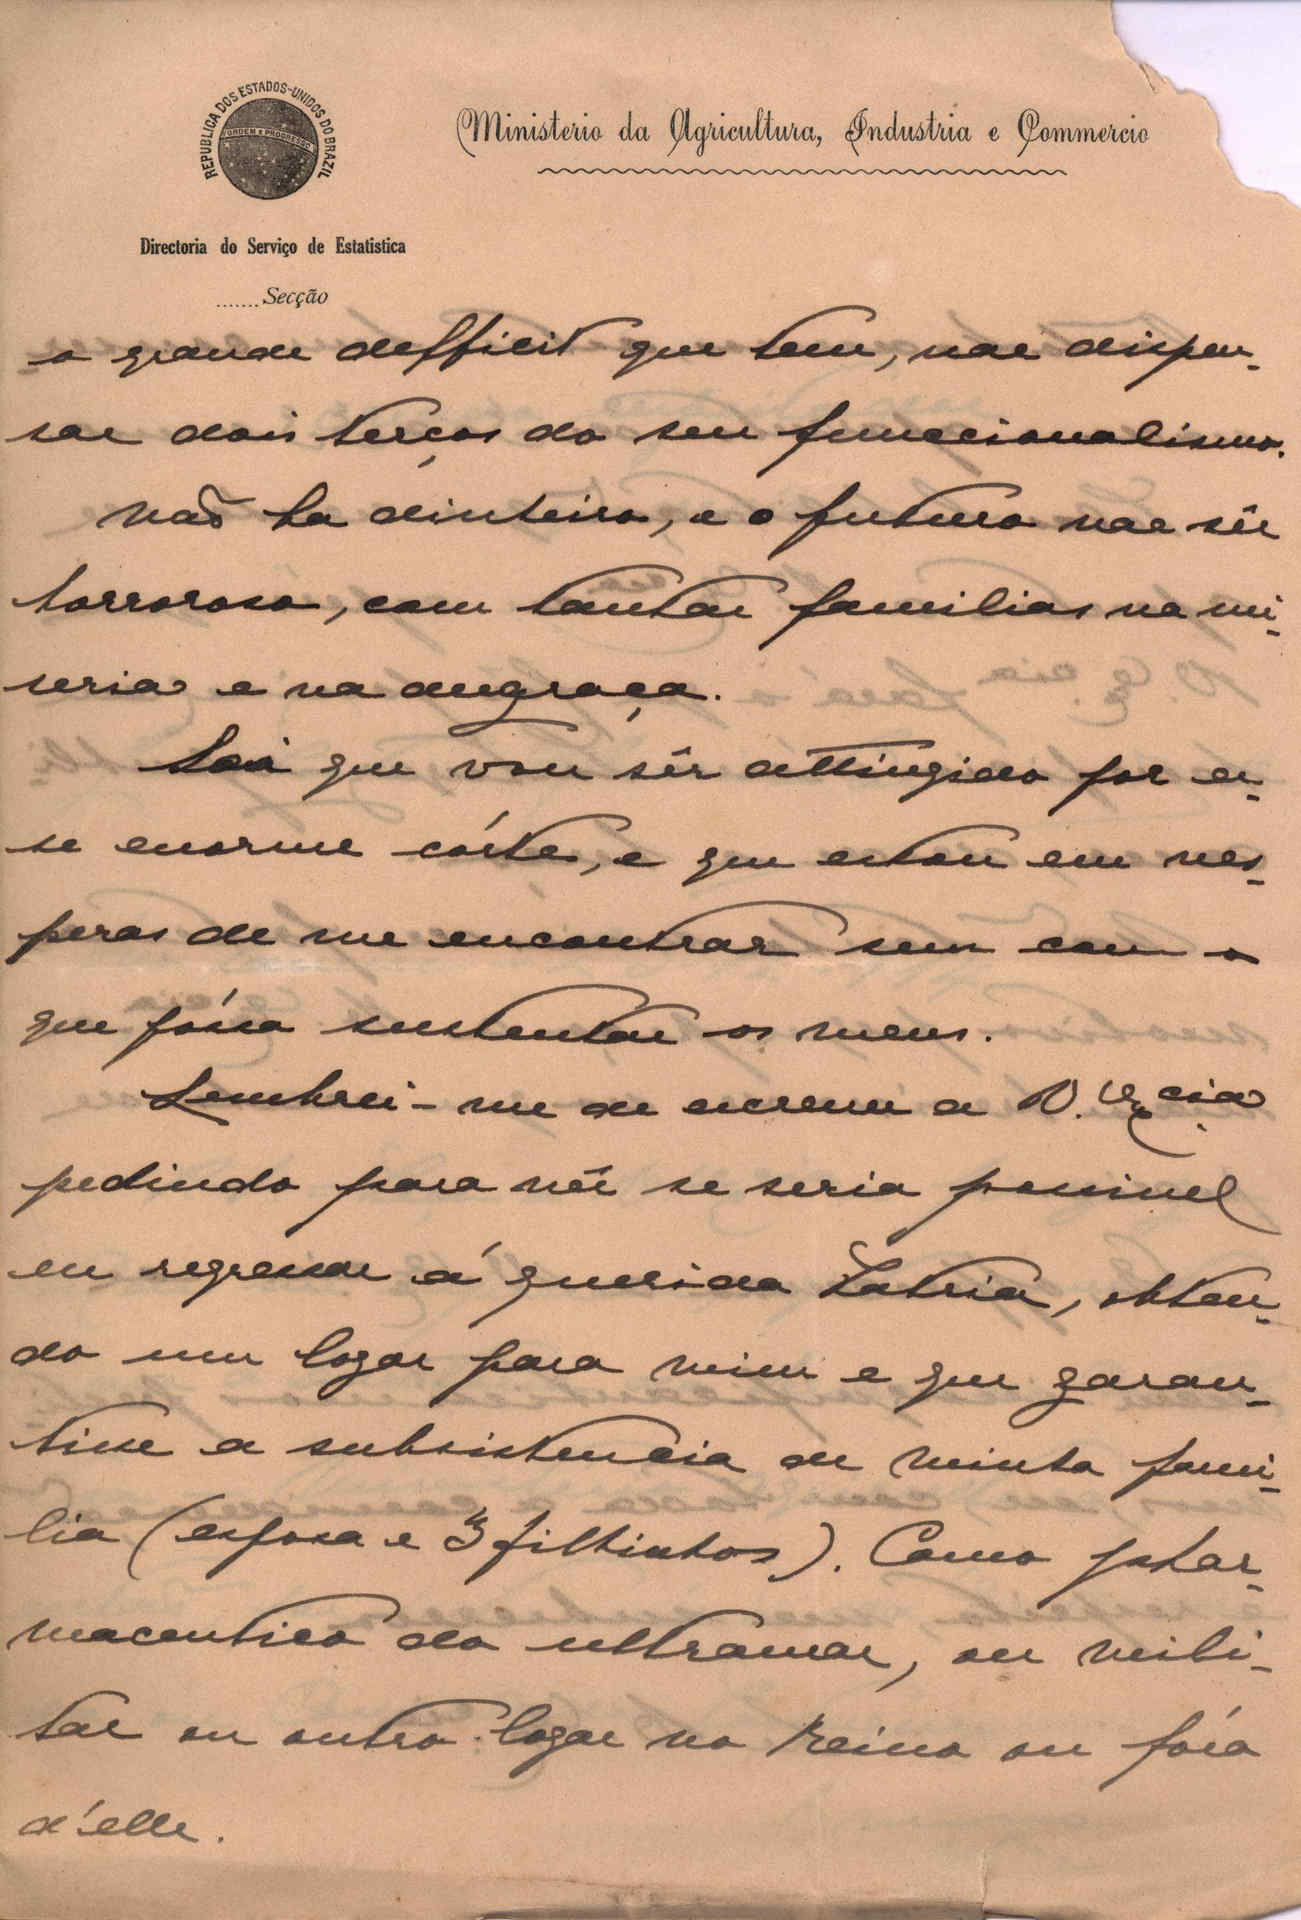 REPUBLICA DOS ESTADOS-UNIDOS DO BRAZIL
ORDEM E PROGRESSO
Ministerio da Agricultura, Industria e Commercio
Directoria do Serviço de Estatistica
.......Secção
o grande defficit que tem, vae dispen-
sar dois terços do seu funccionalismo.
Não ha dinheiro, e o futuro vae sêr
horroroso, com tantas familias na mi-
seria e na desgraça.
Sei que vou sêr attingido por es-
se enorme córte, e que estou em ves-
peras de me encontrar sem com o
que póssa sustentar os meus.
Lembrei-me de escrever a V. Excia.
pedindo para vêr se seria possivel
eu regressar á querida Patria, obten-
do um logar para mim e que garan-
tisse a subsistencia de minha fami-
lia (esposa e 3 filhinhos). Como phar-
maceutico do ultramar, ou mili-
tar ou outro logar no Reino ou fóra
d'elle.